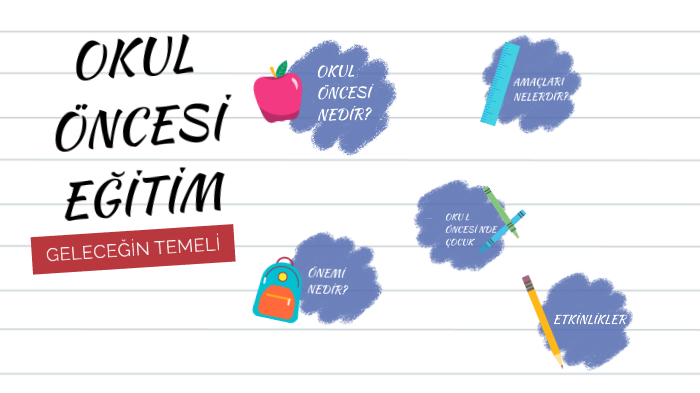 OKUL
ÖNCESİ
EĞİTİM
GELECEĞİN TEMELİ
OKUL
ÖNCESİ
NEDİR?
AMAÇLARI
NELERDİR?
OKU L
ÖNCESİ NDE
ÇOCUK
ÖNEMİ
NEDİR?
ETKİNLİKLER